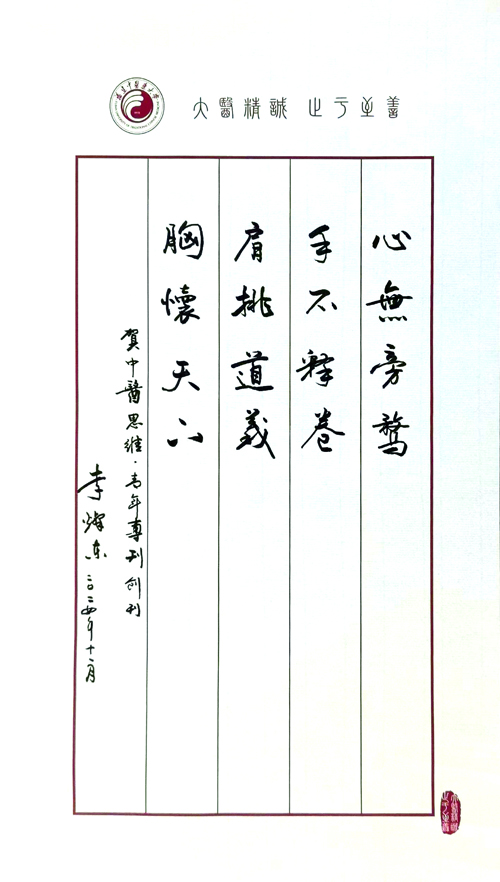 大醫精誠 止于至善
心無旁鶩
手不釋卷
肩挑道義
胸懷天下
賀中醫思維·青年專刊創刊
李燦東 二〇二四年十二月